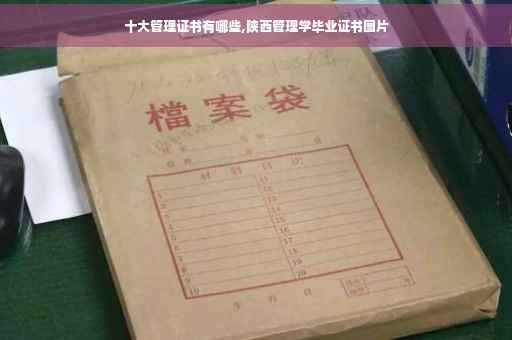 十大管理证书有哪些,陕西管理学毕业证书图片
檔案袋
材料目次
1 11
2 12
3 13
4 14
5 15
6 16
7 17
8 18
9 19
10 20
年 月 日